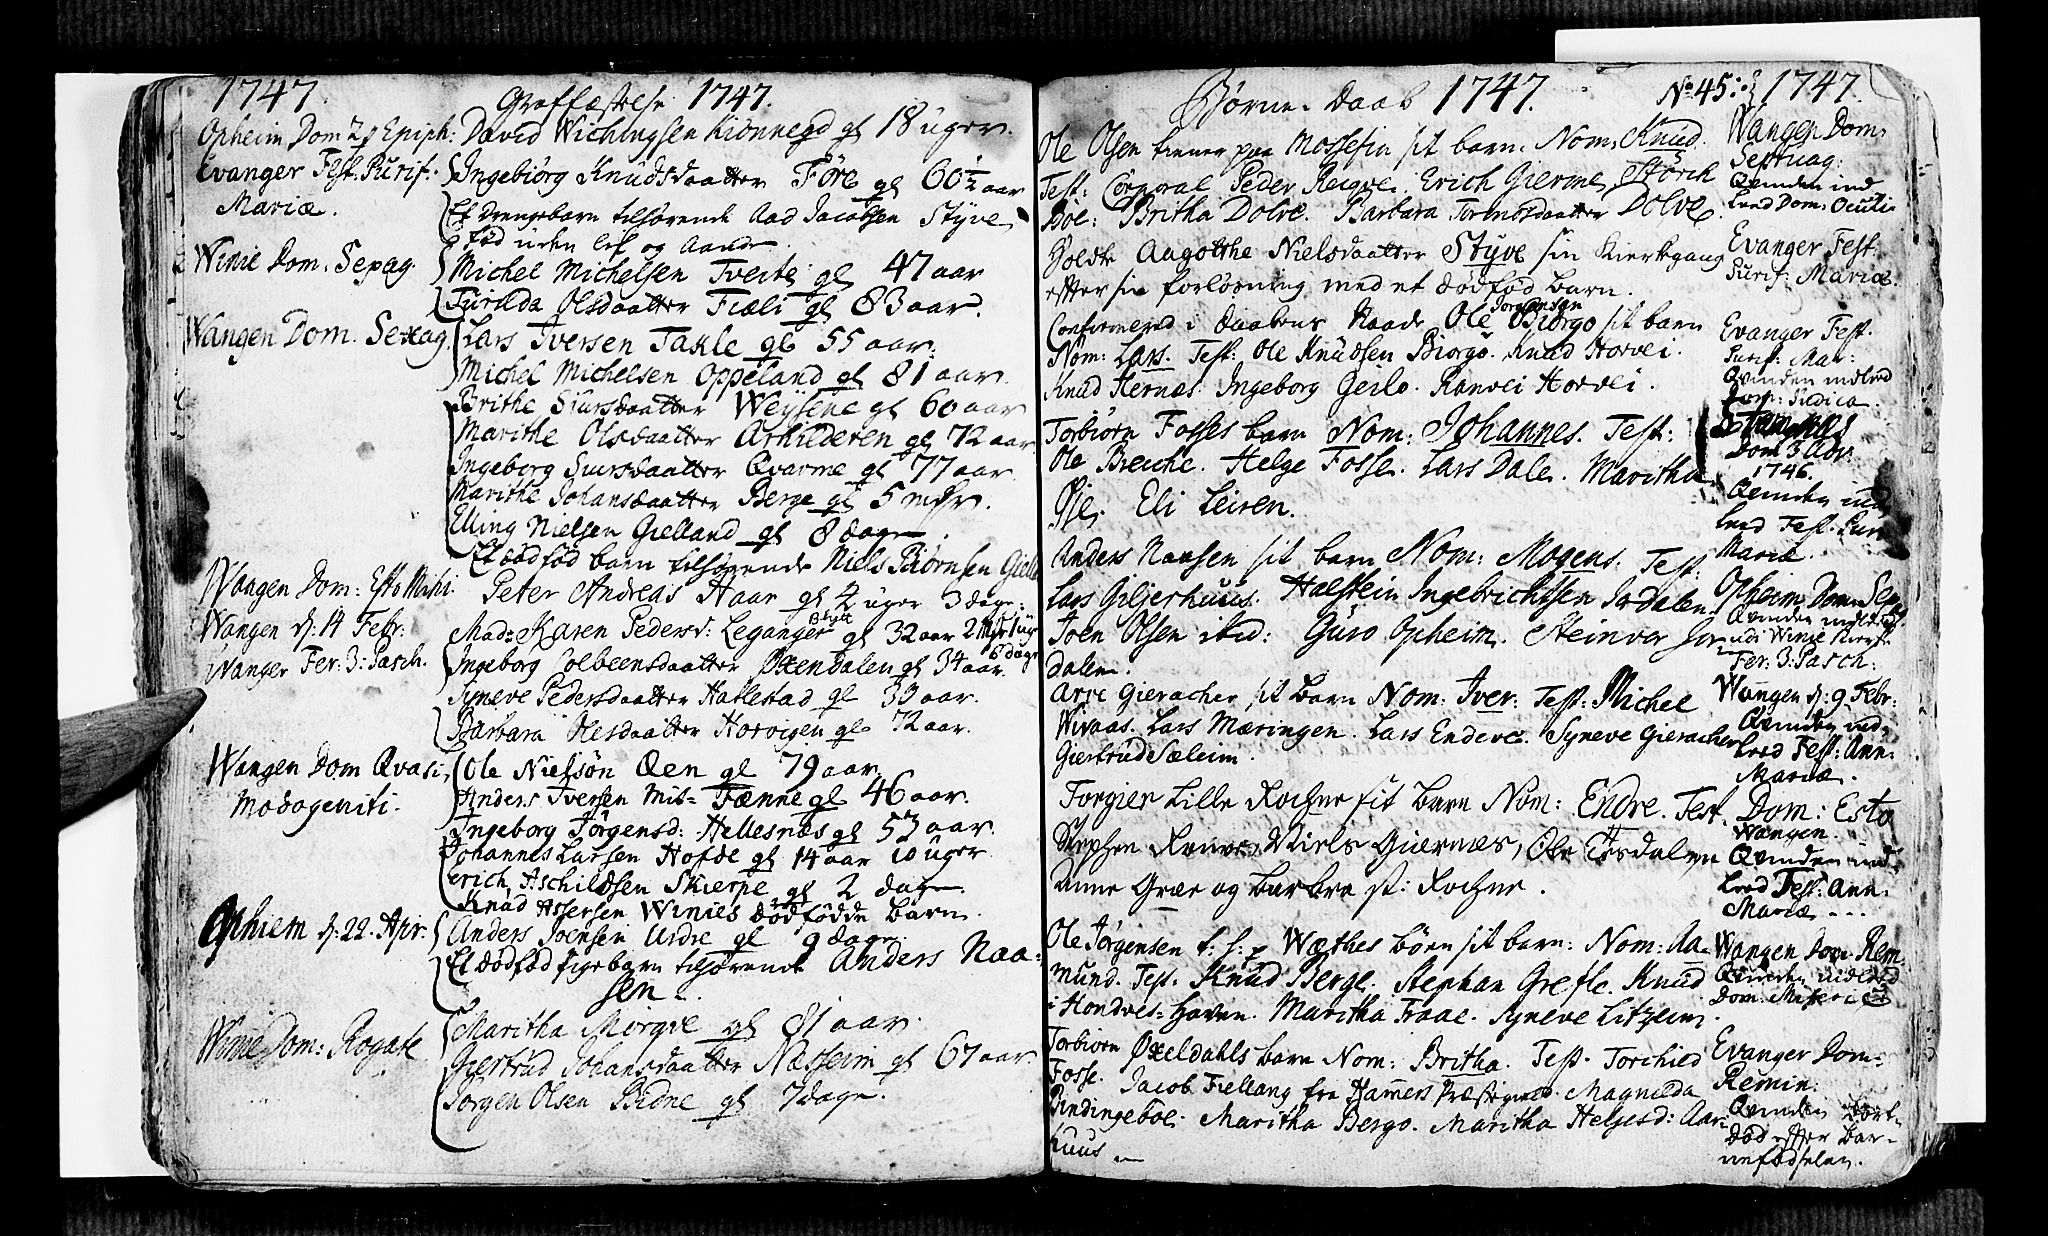 1747. Graffæstelse 1747.
Opheim Dom 2 p Epiph: David Wichingsen Kiönnegd gl 18 uger.
Evanger Fest. Purif. Ingebiørg Knudsdaatter Føre gl 60 1/2 aar
Mariæ. Et drengebarn tilhørende Aad Jacobsen Styve
fød uden lif og Aande.
Winie Dom. Sexag. Michel Michelsen Tveite gl 47 aar
Turilda Olsdaatter Fiæli gl 83 aar.
Wangen Dom. Sexag. Lars Iversen Takle gl 55 aar.
Michel Michelsen Oppeland gl 81 aar.
Brithe Siursdaatter Weÿsene gl 60 aar
Marithe Olsdaatter Arhilderen gl 72 aar
Ingeborg Siursdaatter Qvarme gl 77 aar.
Marithe Johansdaatter Berge gl 5 mdr.
Elling Nielsen Gielland gl 8 dage.
Et dødfød barn tilhørende Niels Biørnsen
Wangen Dom: Esto Mihi. Peter Andreas Haar gl 2 uger 3 dage.
Wangen d: 14 Febr: Mad: Karen Pedersd: Leganger Blÿtt gl 32 aar 2 Mdr 1 uge
6 dage
Evanger Fer: 3: Pasch. Ingeborg Colbeensdaatter Øxendalen gl 34 aar.
Syneve Pedersdaatter Hallestad gl 30 aar.
Barbara Olesdaatter Horvigen gl 72 aar.
Wangen Dom Qvasi- Ole Nielsøn Qen gl 79 aar.
modogeniti. Anders Iversen Mit- Fænne gl 46 aar.
Ingeborg Jørgensd: Hellesnæs gl 53 aar.
Johannes Larsen Hofde gl 14 aar 10 uger
erich Aschildsen Skierpe gl 2 dage.
Knud Assersen Winies dødfødde barn.
Ophiem d: 22. Apr. Anders Joensen Urdre gl 9 dage
Et dødfød Pigebarn tilhørende Anders Naa=
sen.
Winie Dom: Rogate Maritha Mørqve gl 81 aar.
Giertrud Johansdaatter Næsseim gl 67 aar
Jørgen Olsen Bidne gl 7 dage.
Børne-Daab 1747. No 45: 1747.
Ole Olsen tiener paa Mossefin sit barn. Nom: Knud.
Test: Corporal Peder Recqve. Erich Gierme, Störck
Böe: Britha Dolve. Barbara Dolve.
Wangen Dom.
Septuag:
Qvinden ind
leed Dom: Oculi
Holdt Aagotthe Nielsdaatter Styve sin Kierkegang
efter sin forløsning med et dødfød barn.
Evanger Fest.
Purif: Mariæ.
Confirmered i daabens Naade Ole Jørgensen Biørgo sit barn
Nom: Lars. Test: Ole Knudsen Biorgo. Knud Horvei.
Knud Hernes. Ingeborg Geilo. Ranvei Horvei.
Evanger Fest.
Purif: Mar:
Qvinden indleed
Dom: Judica.
Torbiørn Fosses barn Nom: Johannes. Test:
Ole Breche. Helge Fosse. Lars Dale. Maritha
Øie. Eli Leiren.
Stamnes
Dom 3 Adv.
1746.
Qvinden ind
leed Fest. Pur
Mariæ.
Anders Naasen sit barn Nom: Mogens. Test:
Lars Giljerhuus. Halstein Ingebrichtsen Jordalen
Joen Olsen ibid: Guro Opheim. Steinvor Jor
dalen.
Opheim Dom. Sep
Qvinden indleed
udi Winie Kierk
Fer: 3: Pasch:
Arve Gieracher sit barn Nom: Iver. Test: Michel
Wivaas. Lars Mæringen. Lars Endeve. Syneve Gieracher
Giertrud Sæleim.
Wangen d: 9 Febr:
Qvinden ind-
leed Fest: Ann:
Mariæ.
Torgier Lille Rochne sit barn Nom: Endre. Test.
Stephen Niels Giernes, Ole
Anne Græe og Barbra st: Rochne.
Dom: Esto
Wangen.
Qvinden ind-
leed Fest: Ann:
Mariæ ...
Ole Jørgensen Wæthes börn sit barn: Nom: Aa-
mund. Test. Knud Berge. Stephan Grefle. Knud
i Hondves-haven. Maritha Traae. Syneve Litzeim.
Wangen Dom. Rem:
Qvinden indleed
Dom: Miseric
Torbiørn Øxeldahls barn Nom: Britha. Test. Torchild
Fosse. Jacob Fiellang fra Hammers Præstegield. Magnilda
Bindingeboe. Maritha Bergo. Maritha Helgesd: Aar-
huus.
Evanger Dom:
Remin:
Qvinden bort-
død efter bar-
nefødselen.